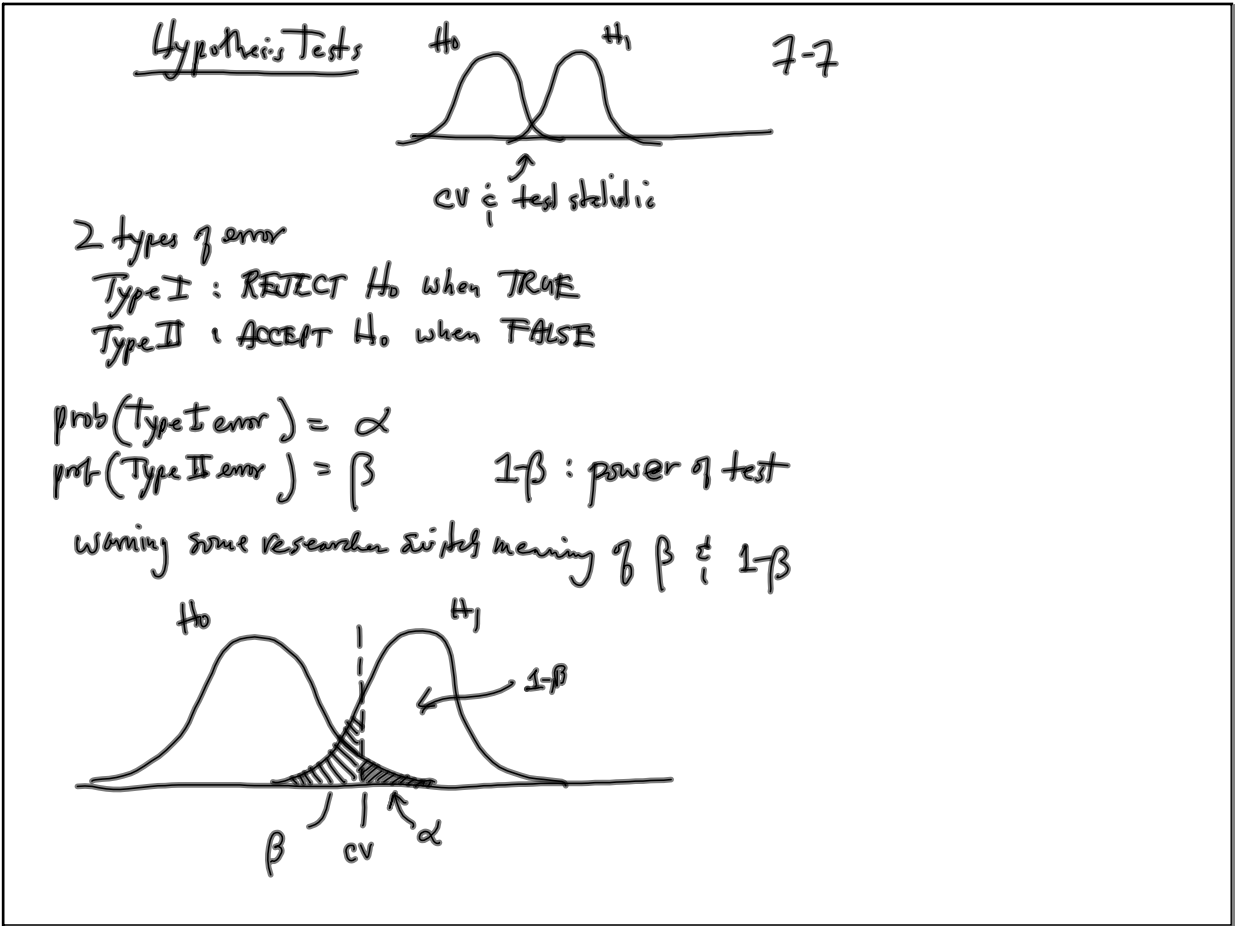 Hypothesis Tests
H₀ H₁ 7-7
CV & test statistic
2 types of error
Type I : REJECT H₀ when TRUE
Type II : ACCEPT H₀ when FALSE
prob(Type I error) = α
prob(Type II error) = β 1-β : power of test
warning some researcher switch meaning of β & 1-β
H₀ H₁
1-β
β CV α